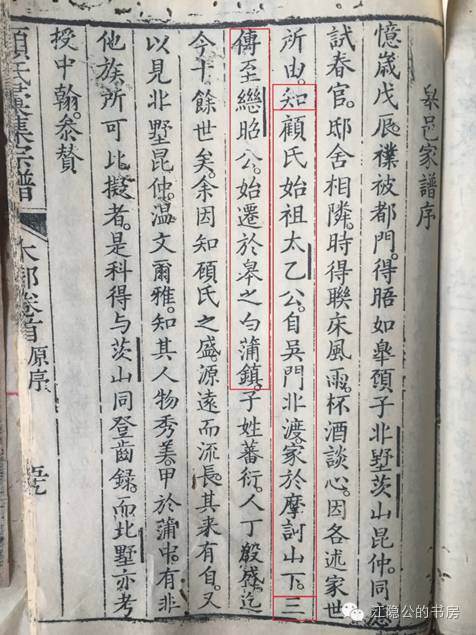 臯邑家譜序
憶歲戊辰。襆被都門。得晤如臯頋子非墅茨山昆仲同
試春官。邸舍相隣。時得聯床風雨。杯酒談心。因各述家世
所由。知顧氏始祖太乙公。自吳門非渡。家於摩訶山下。三
傳至昭公。始遷於臯之白蒲鎮。子姓蕃衍。人丁殷盛。迄
今十餘世矣。余因知頋氏之盛。源遠而流長。其來有自。又
以見非墅昆仲。温文爾雅。知其人物秀美。甲於蒲中。有非
他族所可比擬者。是科得与茨山同登齒録。而北墅亦考
授中翰。叅贊
頋氏彙集宗譜
卷首
原序
江隐公的书房